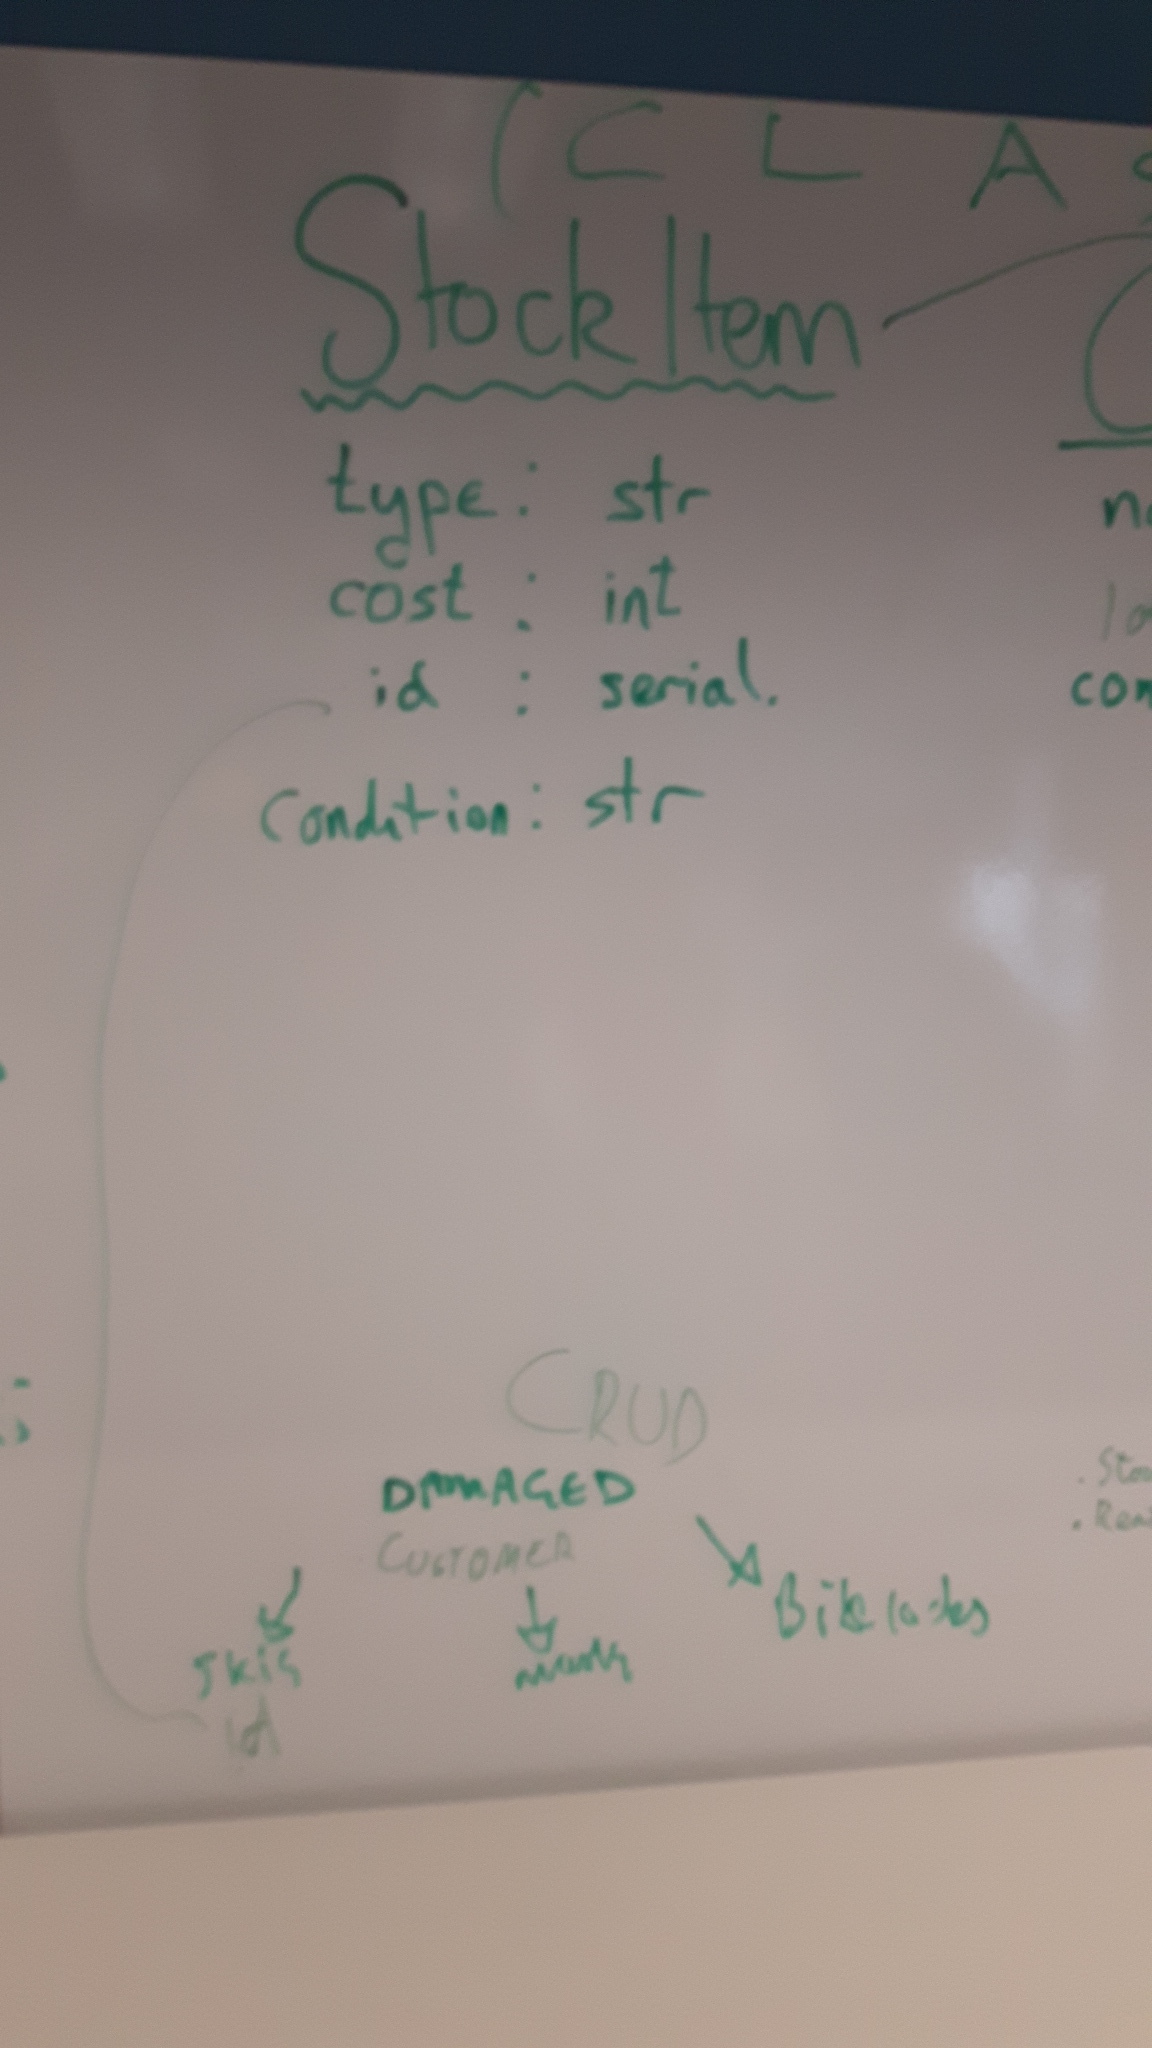 (CLAS
StockItem
type: str
cost: int
id : serial.
condition: str
CRUD
DAMAGED
CUSTOMER
skis
id
Bike